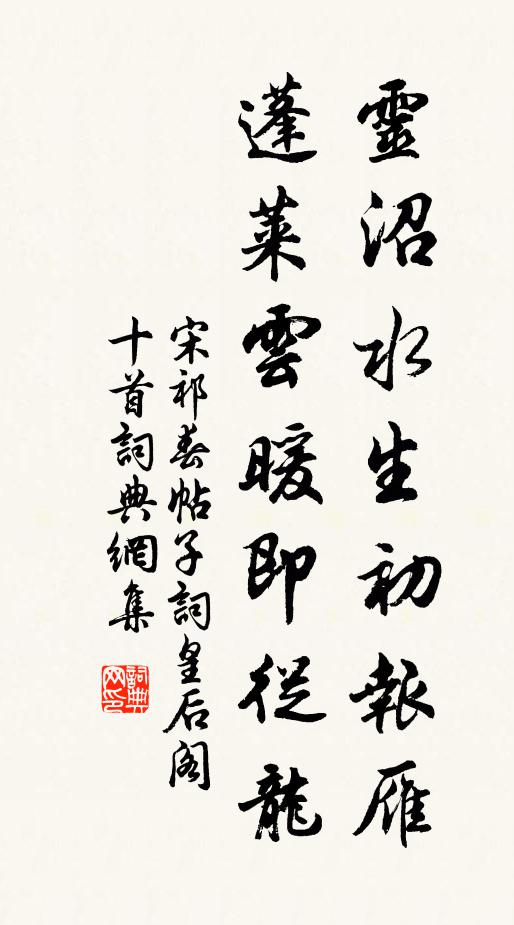 靈沼水生初報雁
蓬萊雲暖即從龍
宋祁春帖子詞皇后閣
十首詞典網集
詞典
网印